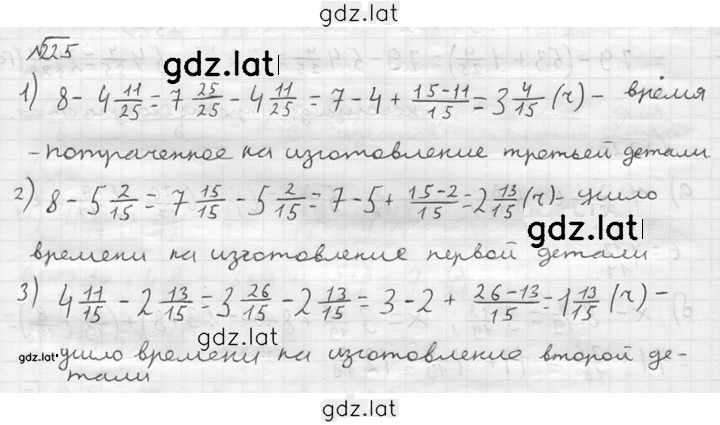 gdz.lat
№225
gdz.lat
1) 8 - 4 11/25 = 7 25/25 - 4 11/25 = 7 - 4 + 15-11/15 = 3 4/15 (ч) - время
- потраченное на изготовление третьей детали.
2) 8 - 5 2/15 = 7 15/15 - 5 2/15 = 7 - 5 + 15-2/15 = 2 13/15 (ч) - ушло
gdz.lat
времени на изготовление первой детали
3) 4 11/15 - 2 13/15 = 3 26/15 - 2 13/15 = 3 - 2 + 26-13/15 = 1 13/15 (ч) -
gdz.lat
gdz.lat ушло времени на изготовление второй де-
тали
gdz.lat